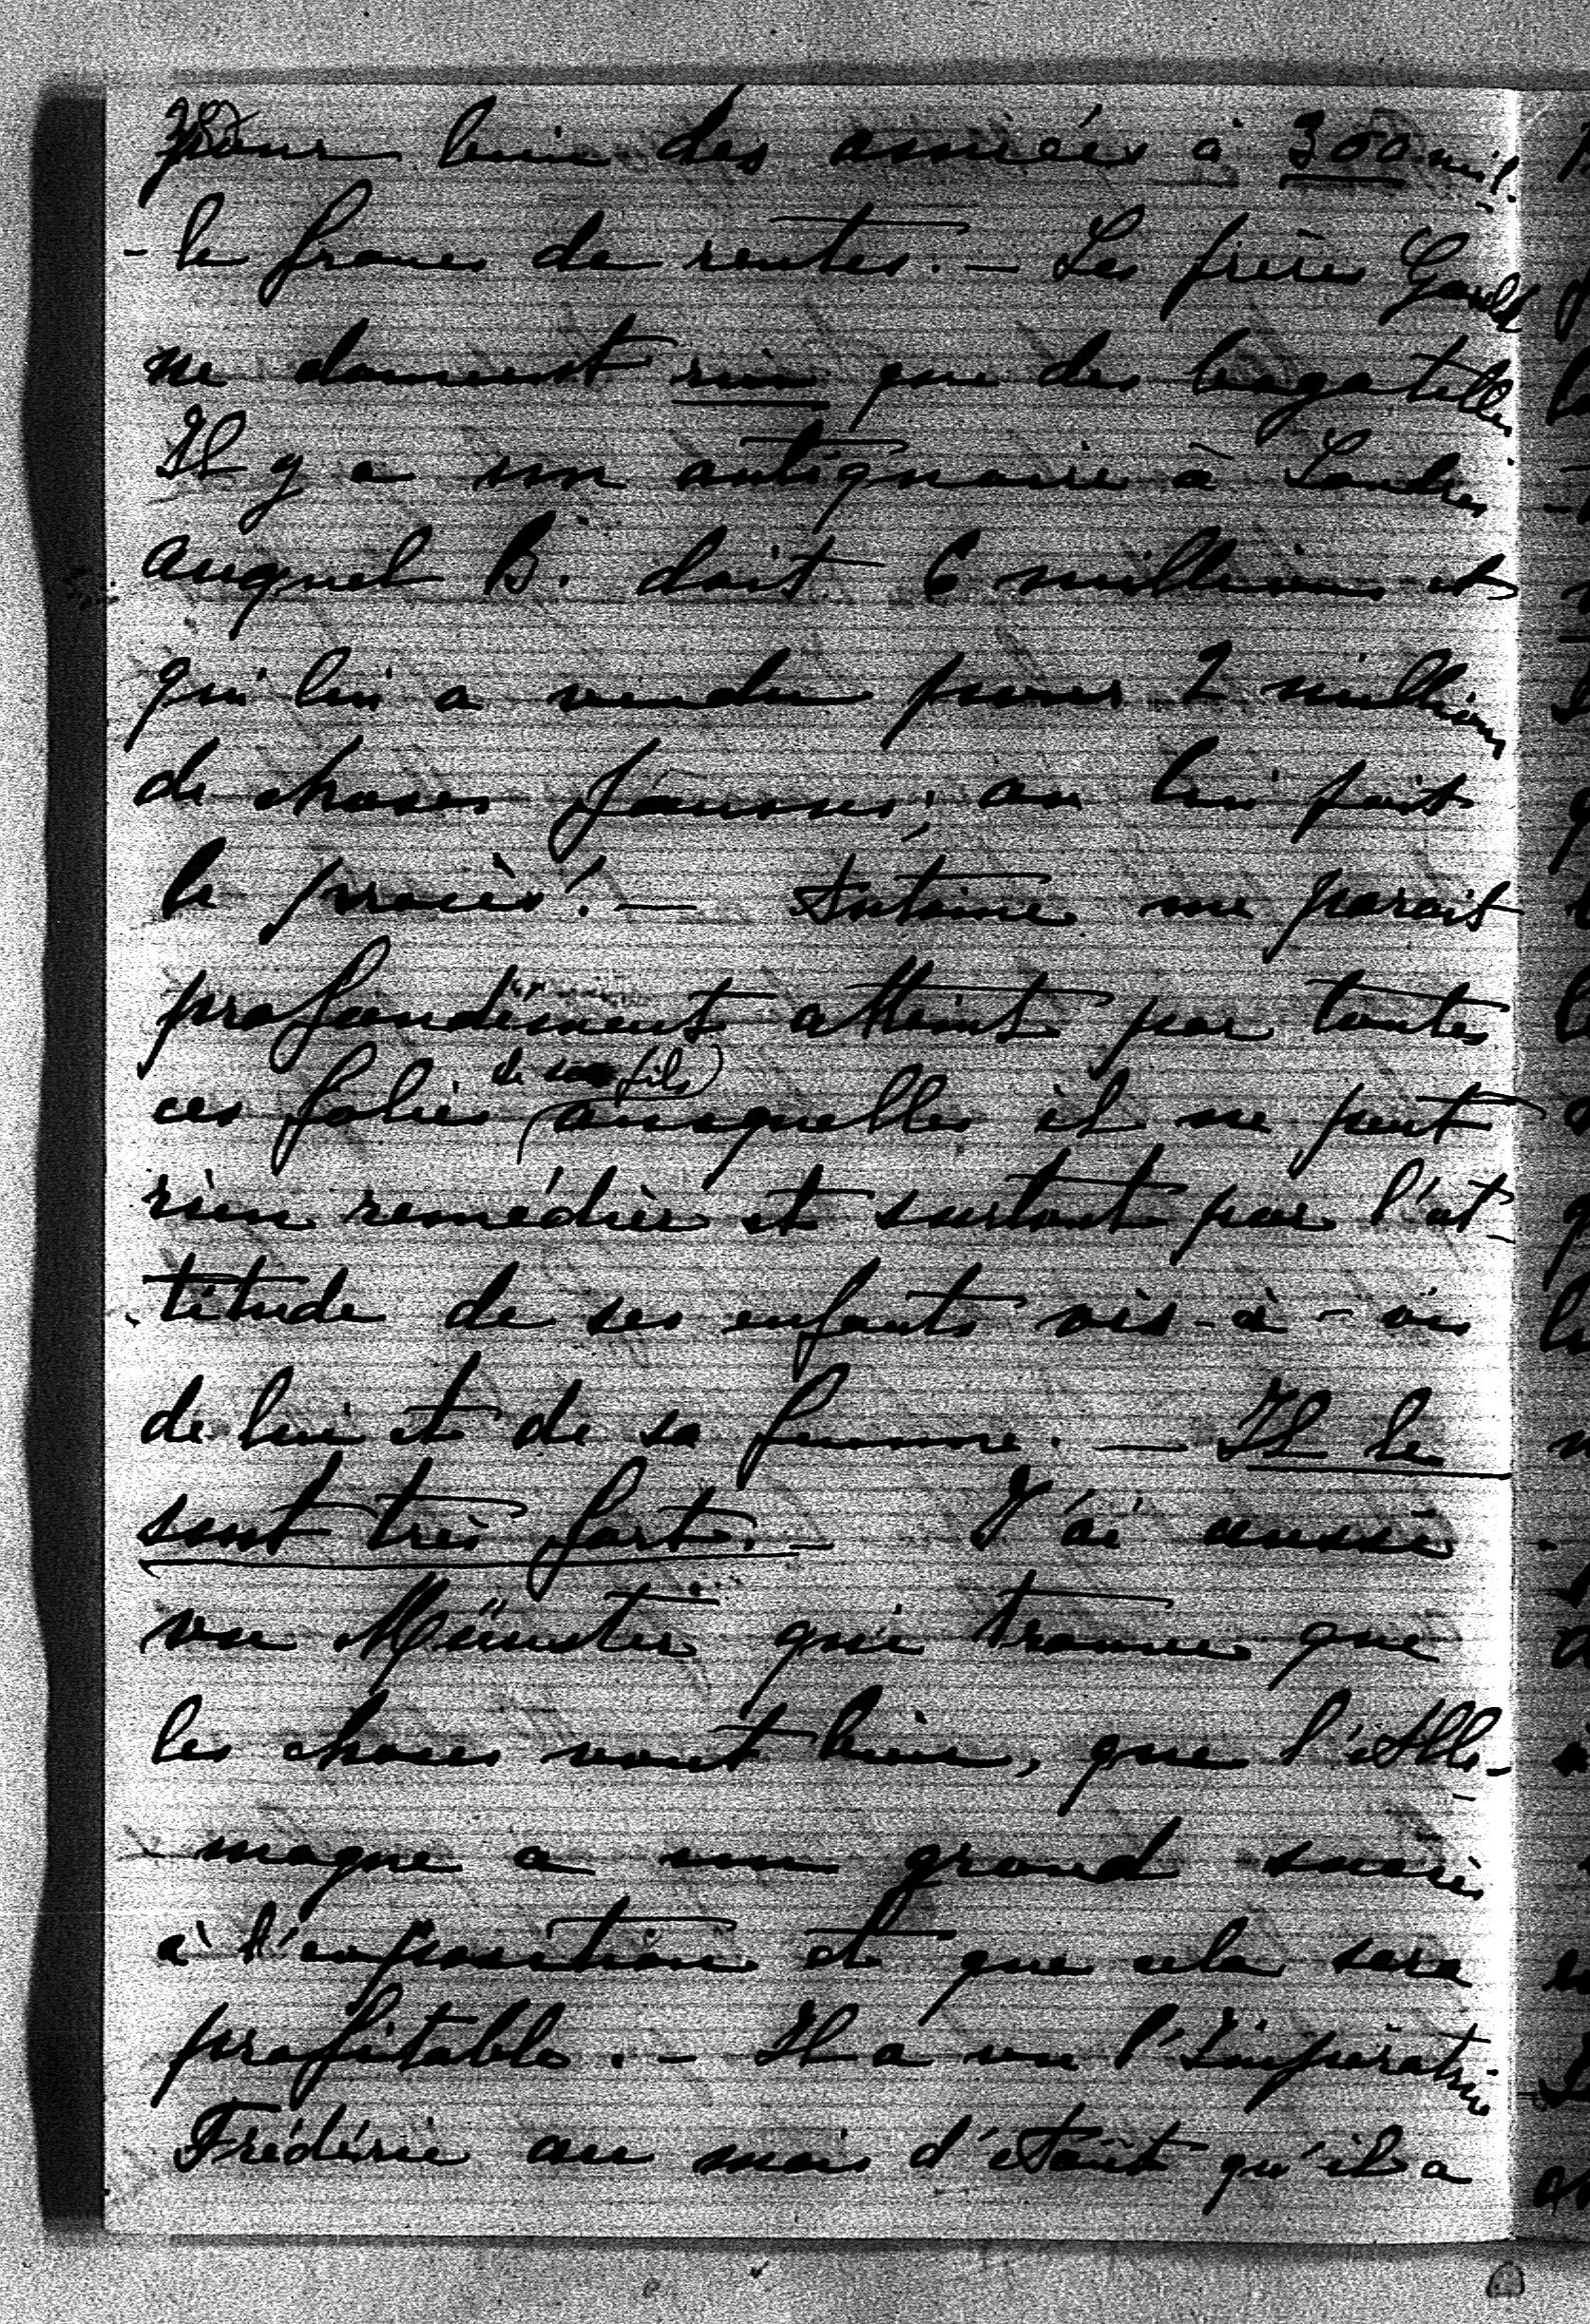 pour lui des années à 300 mil-
-le francs de rentes. — Les frères Gould
ne donnent rien que des bagatelles
Il y a un antiquaire à Londres
auquel B. doit 6 millions et
qui lui a vendu pour 2 millions
de choses fausses; on lui fait
le procès! — Antoine me parait
profondément atteint par toutes
ces folies (de son fils) auxquelles il ne peut
rien remédier et surtout par l'at-
-titude de ses enfants vis-à-vis
de lui et de sa femme. — Il le
sent très fort. — J'ai aussi
vu Münster qui trouve que
les choses vont bien, que l'Alle-
-magne a un grand succès
à l'exposition et que cela sera
profitable. — Il a vu l'Impératrice
Frédéric au mois d'Août qu'il a